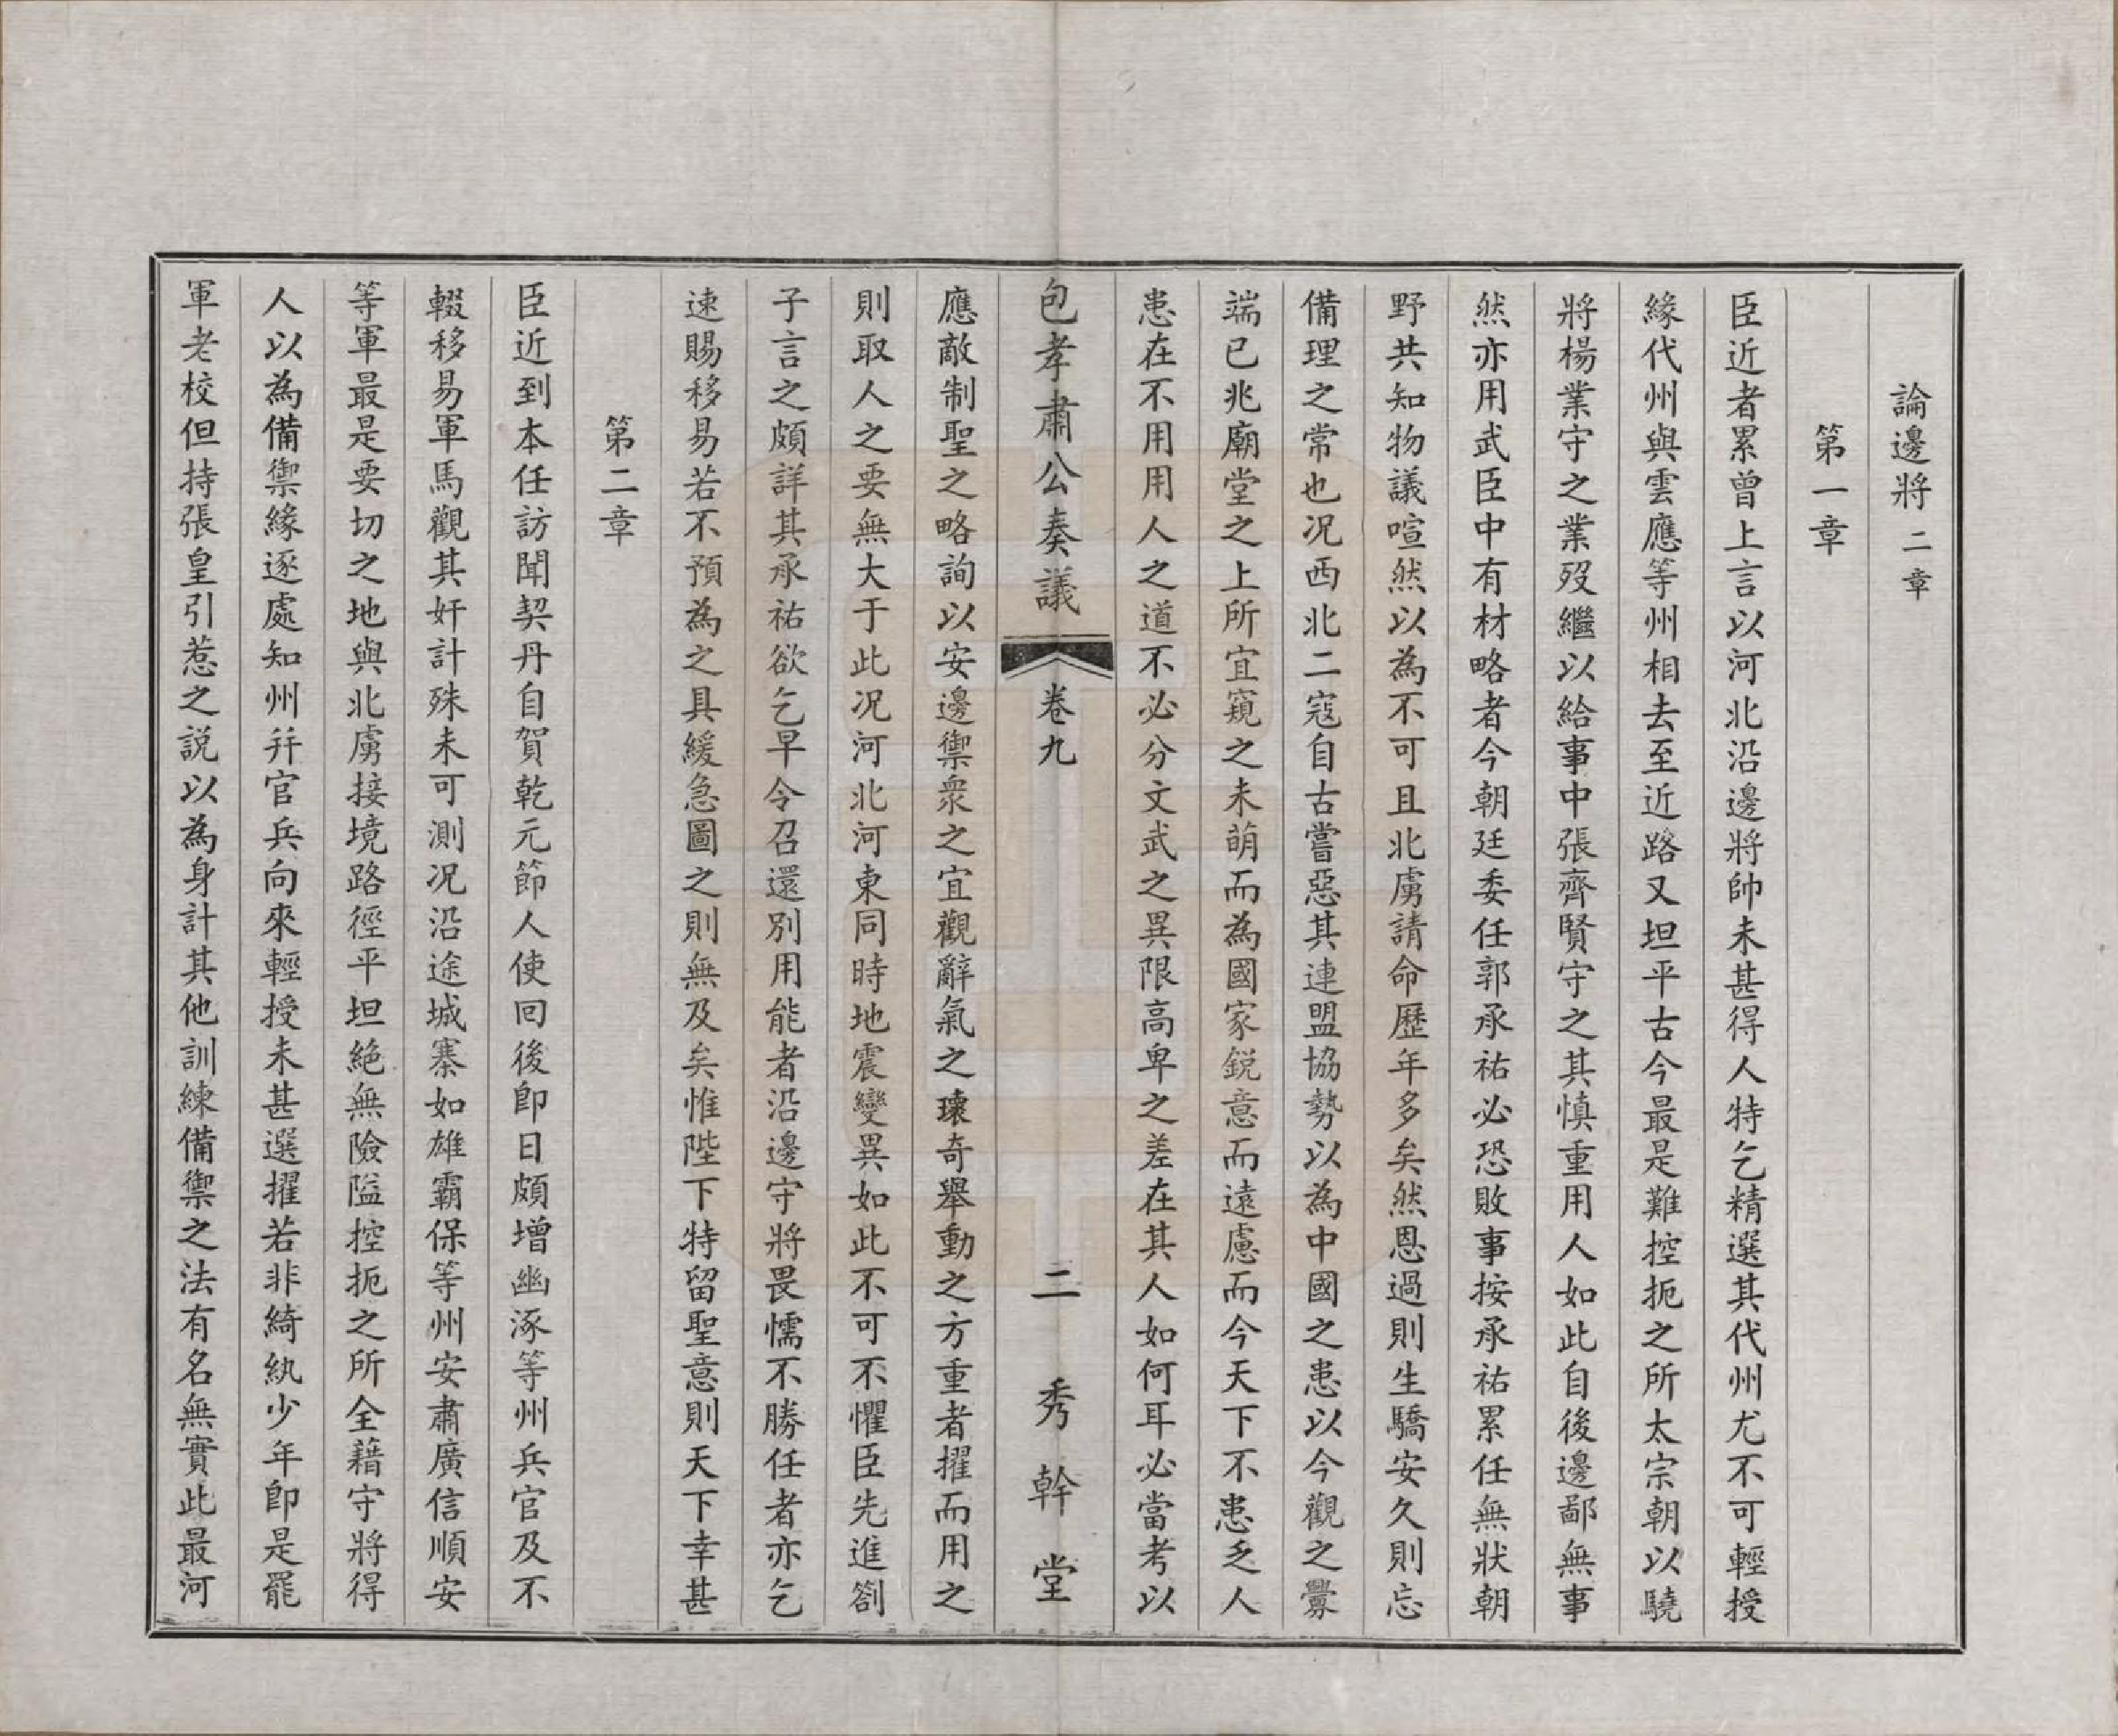 論邊將二章
第一章
臣近者累曾上言以河北沿邊將帥未甚得人特乞精選其代州尤不可輕授
緣代州與雲應等州相去至近路又坦平古今最是難控扼之所太宗朝以驍
將楊業守之業歿繼以給事中張齊賢守之其慎重用人如此自後邊鄙無事
然亦用武臣中有材略者今朝廷委任郭承祐必恐敗事按承祐累任無狀朝
野共知物議喧然以為不可且北虜請命歷年多矣然恩過則生驕安久則忘
備理之常也况西北二寇自古嘗惡其連盟協勢以為中國之患以今觀之釁
端已兆廟堂之上所宜窺之未萌而為國家銳意而遠慮而今天下不患乏人
患在不用用人之道不必分文武之異限高卑之差在其人如何耳必當考以
包孝肅公奏議 卷九 二 秀幹堂
應敵制聖之略詢以安邊禦衆之宜觀辭氣之瓌奇舉動之方重者擢而用之
則取人之要無大于此况河北河東同時地震變異如此不可不懼臣先進劄
子言之頗詳其承祐欲乞早令召還別用能者沿邊守將畏懦不勝任者亦乞
速賜移易若不預為之具緩急圖之則無及矣惟陛下特留聖意則天下幸甚
第二章
臣近到本任訪聞契丹自賀乾元節人使回後即日頗增幽涿等州兵官及不
輟移易軍馬觀其奸計殊未可測况沿途城寨如雄霸保等州安肅廣信順安
等軍最是要切之地與北虜接境路徑平坦絕無險隘控扼之所全藉守將得
人以為備禦緣逐處知州并官兵向來輕授未甚選擢若非綺紈少年即是罷
軍老校但持張皇引惹之說以為身計其他訓練備禦之法有名無實此最河